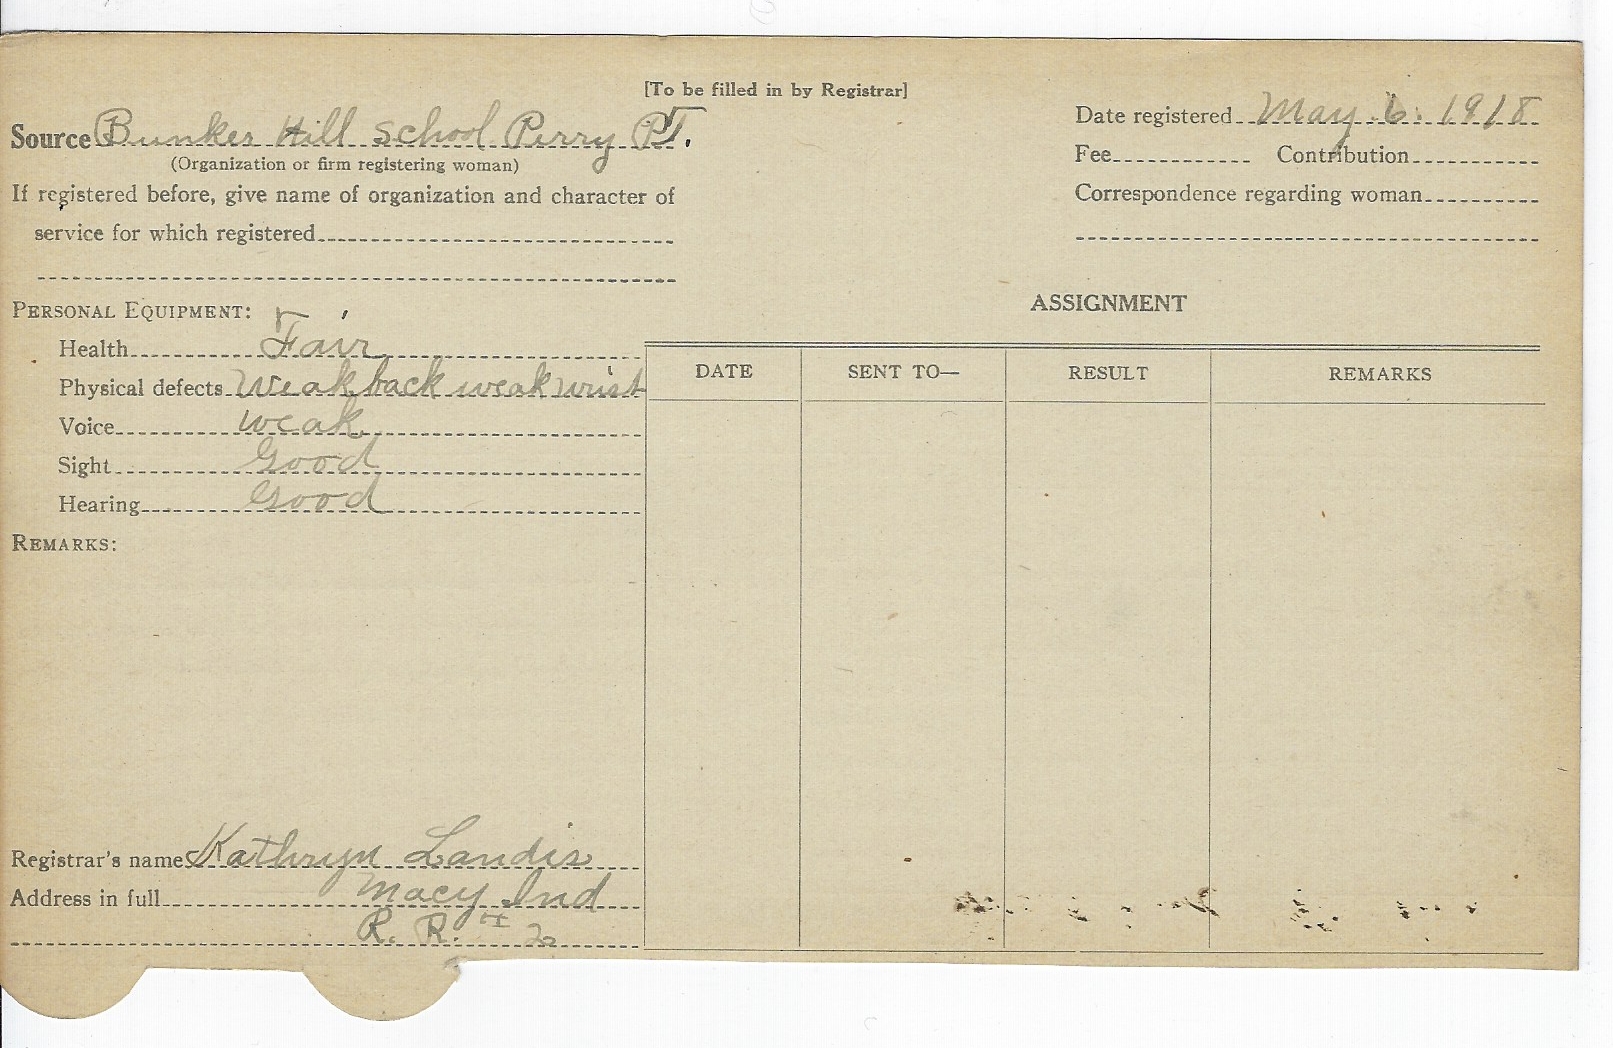 [To be filled in by Registrar]
Source Bunker Hill School Perry PT.
(Organization or firm registering woman)
If registered before, give name of organization and character of
service for which registered
Date registered May 6. 1918
Fee Contribution
Correspondence regarding woman
PERSONAL EQUIPMENT:
Health Fair
Physical defects Weak back weak wrist
Voice weak
Sight Good
Hearing Good
REMARKS:
Registrar's name Kathryn Landis
Address in full Macy Ind
R. R. # 2
ASSIGNMENT
DATE SENT TO— RESULT REMARKS